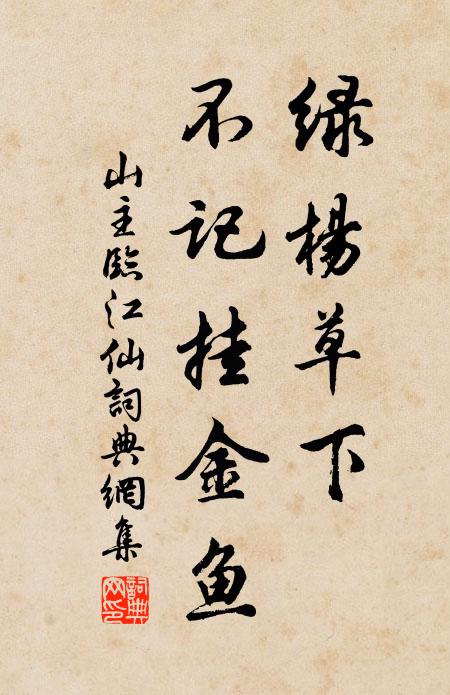 绿杨草下
不记挂金鱼
山主臨江仙詞典網集
詞典网印